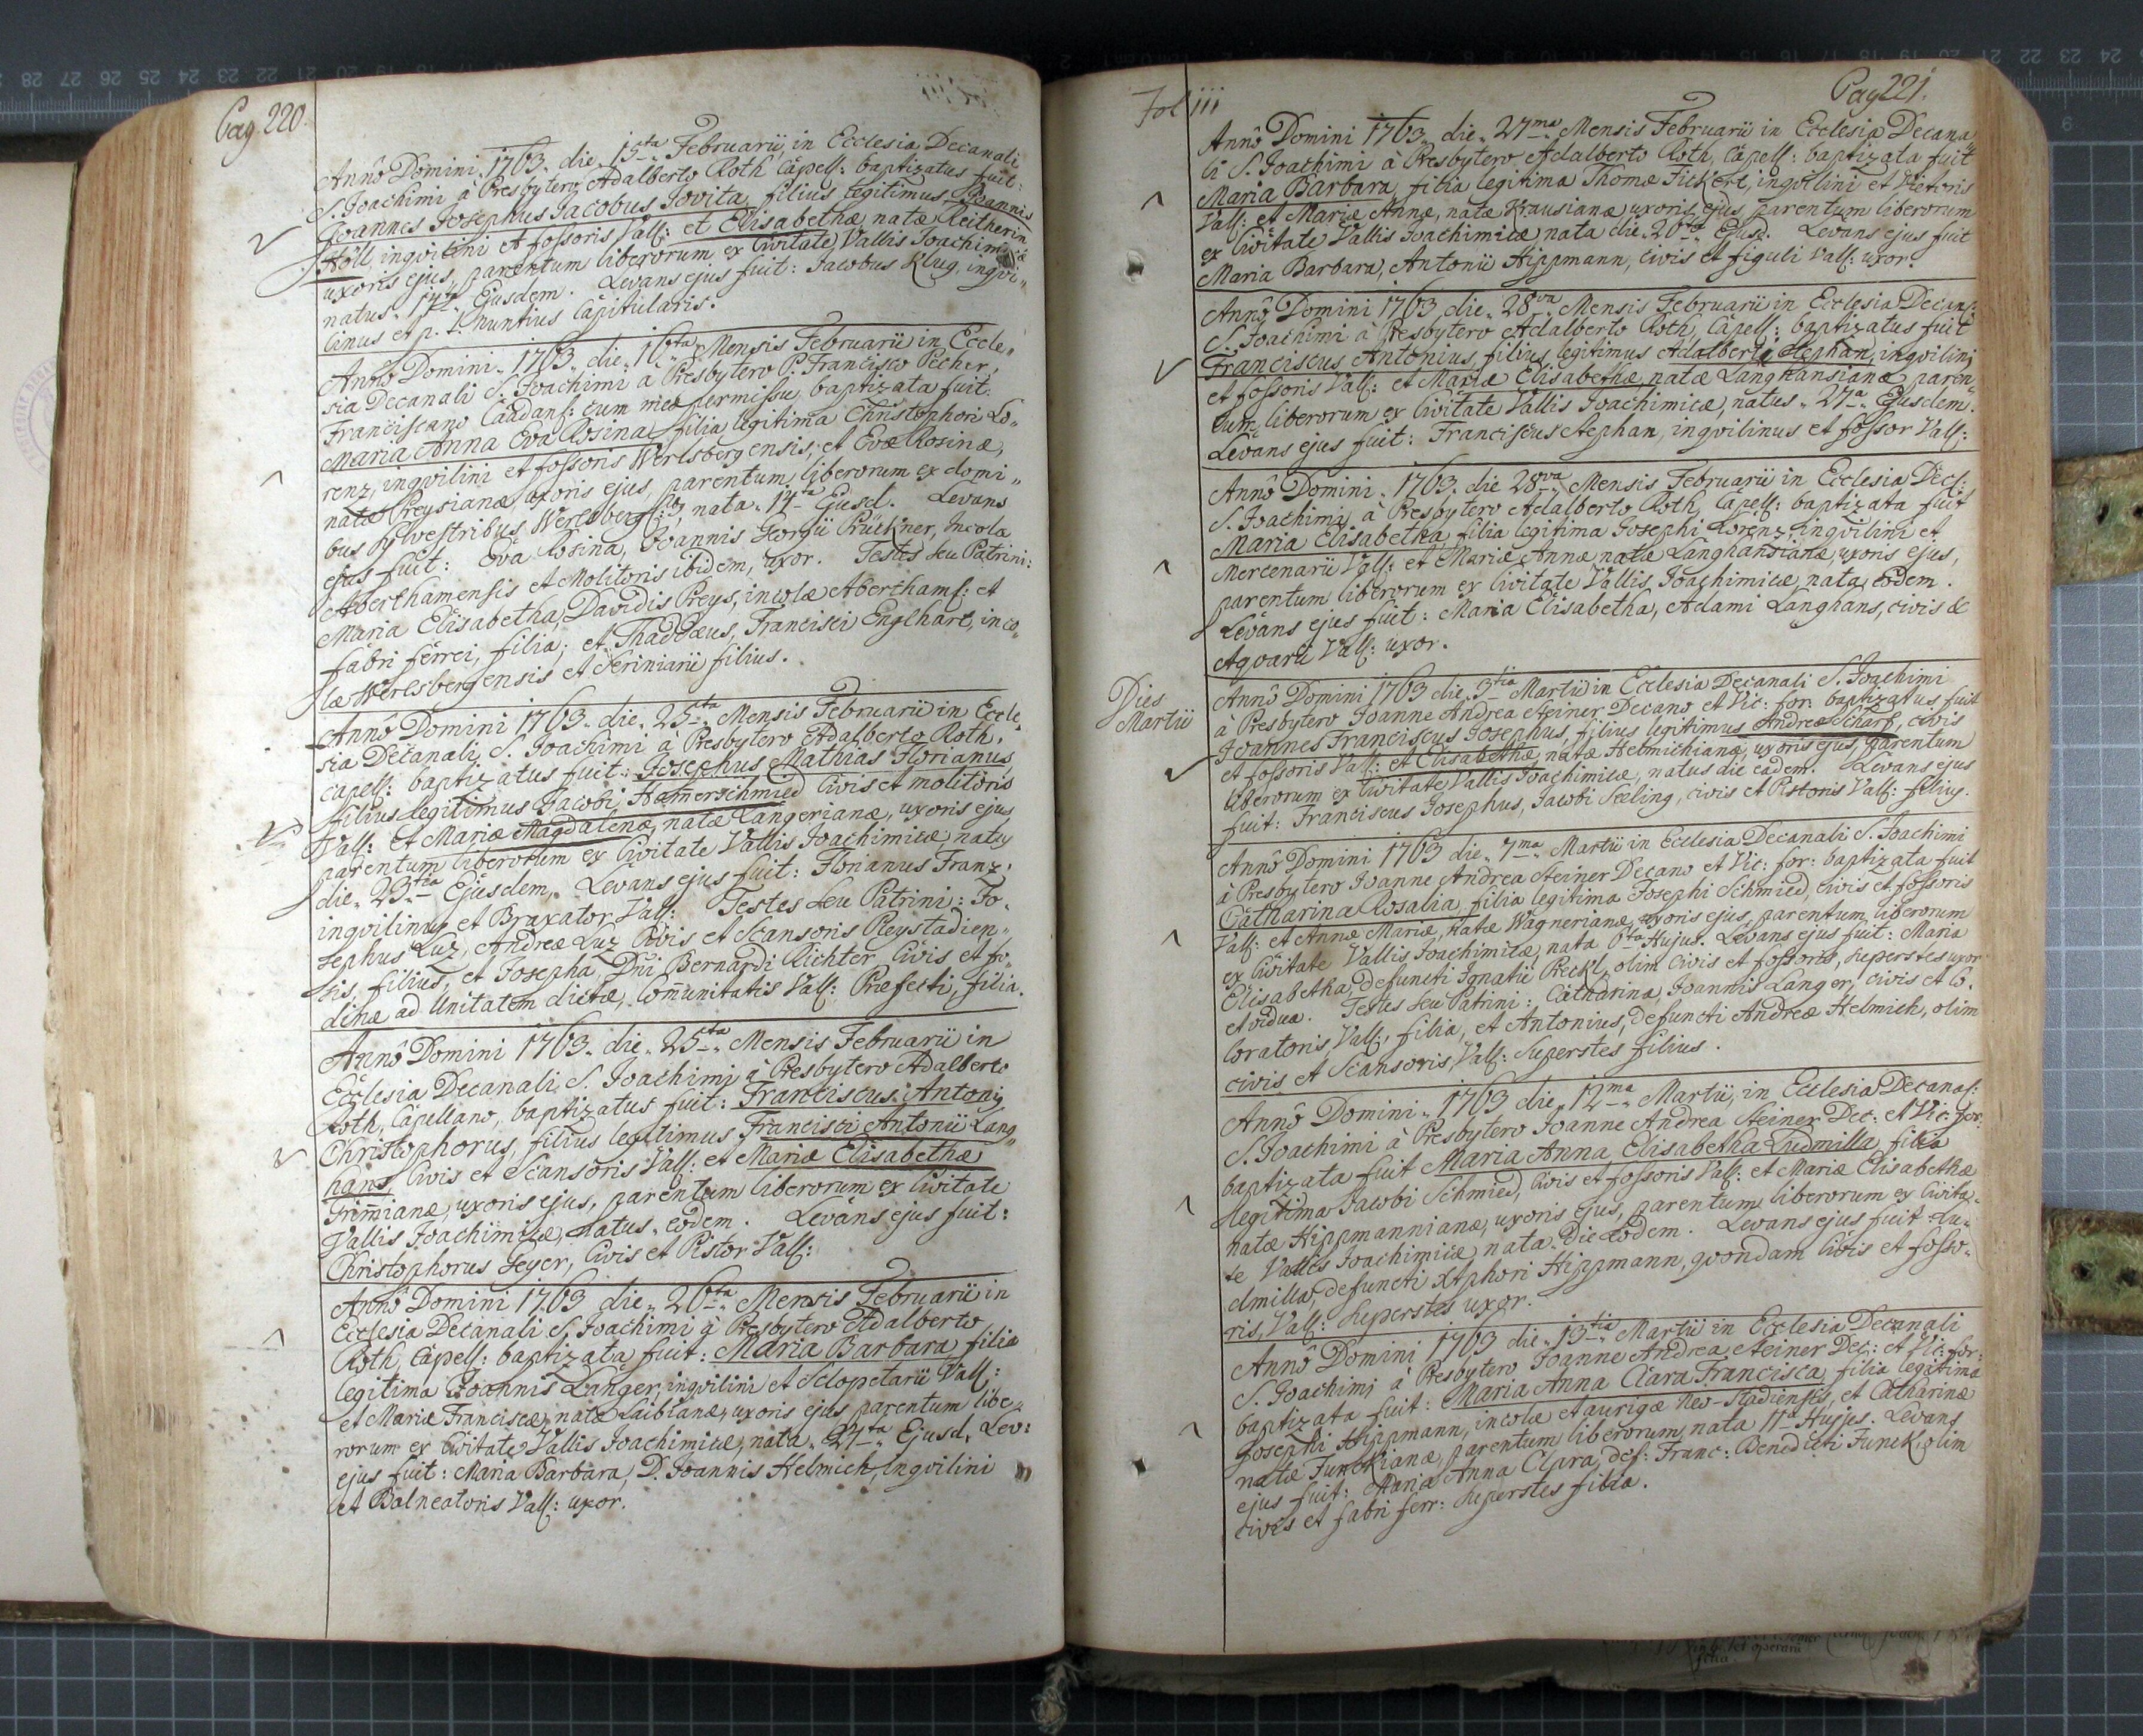 Pag. 220.
Annô Domini 1763. die 15ta Februarii, in Ecclesia Decanali
S. Joachimi à Presbytero Adalberto Roth Capell: baptizatus fuit:
Joannes Josephus Jacobus Jovita, filius legitimus Joannis
Höll, inqvilini et fossoris Vall: et Elisabethæ, natæ Reitherin,
uxoris ejus, parentum liberorum ex Civitate Vallis Joachimicæ
natus 14ta Ejusdem. Levans ejus fuit: Jacobus Klug, inqvi„
linus et p. t. nuntius Capitularis.
Annô Domini 1763. die 16ta Mensis Februarii in Eccle„
sia Decanali S. Joachimi à Presbytero P. Francisco Pecher,
Franciscano Caadans: cum meo permissu, baptizata fuit:
Maria Anna Eva Rosina, filia legitima Christophori Lo„
renz, inqvilini et fossoris Werlsbergensis, et Evæ Rosinæ,
natæ Preysianæ, uxoris ejus, parentum liberorum ex domi„
bus sylvestribus Werlsberg:, nata 14ta Ejusd. Levans
ejus fuit: Eva Rosina, Joannis Georgii Prückner, Incola
Aberthamensis et Molitoris ibidem, uxor. Testes seu Patrini:
Maria Elisabetha, Davidis Preys, incolæ Aberthams: et
fabri ferrei, filia; et Thaddæus, Francisci Englhart, inco„
læ Werlsbergensis et Scriniarii filius.
Annô Domini 1763. die 25ta Mensis Februarii in Eccle„
sia Decanali S. Joachimi à Presbytero Adalberto Roth,
capell: baptizatus fuit: Josephus Mathias Florianus
filius legitimus Jacobi Hamerschmied Civis et molitoris
Vall: et Mariæ Magdalenæ, natæ Langerianæ, uxoris ejus,
parentum liberorum ex Civitate Vallis Joachimicæ, natus
die 23tia Ejusdem. Levans ejus fuit: Florianus Franz,
inqvilinus et Braxator Vall: Testes seu Patrini: Jo„
sephus Luz, Andreæ Luz Civis et Scansoris Pleystadien„
sis, filius, et Josepha, Dñi Bernardi Richter Civis et fo„
dinæ ad Unitatem dictæ, Com̄unitatis Vall: Præfecti, filia.
Annô Domini 1763. die 25ta Mensis Februarii in
Ecclesia Decanali S. Joachimi à Presbytero Adalberto
Roth, Capellano, baptizatus fuit: Franciscus Antonius
Christophorus, filius legitimus Francisci Antonii Lang„
hans Civis et Scansoris Vall: et Mariæ Elisabethæ
Grim̄ianæ, uxoris ejus, parentum liberorum ex Civitate
Vallis Joachimicæ, natus eodem. Levans ejus fuit:
Christophorus Seyer, Civis et Pistor Vall:
Annô Domini 1763 die 26ta Mensis Februarii in
Ecclesia Decanali S. Joachimi à Presbytero Adalberto
Roth, Capell: baptizata fuit: Maria Barbara, filia
legitima Joannis Langer, inqvilini et Sclopetarii Vall:
et Mariæ Franciscæ, natæ Laibianæ, uxoris ejus parentum libe„
rorum ex Civitate Vallis Joachimicæ, nata 24ta Ejusd. Lev:
ejus fuit: Maria Barbara, D. Joannis Helmich, Inqvilini
et Balneatoris Vall: uxor.
Fol 111
Pag 221.
Annô Domini 1763 die 27ma Mensis Februarii in Ecclesia Decana„
li S. Joachimi à Presbytero Adalberto Roth, Capell: baptizata fuit
Maria Barbara, filia legitima Thomæ Fickert, inqvilini et Victoris
Vall: et Mariæ Annæ, natæ Krausianæ, uxoris ejus, parentum liberorum
ex Civitate Vallis Joachimicæ nata die 26ta Ejusd. Levans ejus fuit
Maria Barbara, Antonii Hippmann, civis et figuli Vall: uxor.
Annô Domini 1763 die 28va Mensis Februarii in Ecclesia Decana:
S. Joachimi à Presbytero Adalberto Roth, Capell: baptizatus fuit
Franciscus Antonius, filius legitimus Adalberti Stephan, inqvilini
et fossoris Vall: et Mariæ Elisabethæ, natæ Langhansianæ, paren„
tum liberorum ex Civitate Vallis Joachimicæ, natus 27ma Ejusdem.
Levans ejus fuit: Franciscus Stephan, inqvilinus et fossor Vall:
Annô Domini 1763 die 28va Mensis Februarii in Ecclesia Decl:
S. Joachimi à Presbytero Adalberto Roth, Capell: baptizata fuit
Maria Elisabetha, filia legitima Josephi Lorenz, inqvilini et
Mercenarii Vall: et Mariæ Annæ, natæ Langhansianæ, uxoris ejus,
parentum liberorum ex Civitate Vallis Joachimicæ, nata eodem.
Levans ejus fuit: Maria Elisabetha, Adami Langhans, civis &
Aqvarii Vall: uxor.
Dies
Martii
Annô Domini 1763 die 3tia Martii in Ecclesia Decanali S. Joachimi
à Presbytero Joanne Andrea Steiner Decano et Vic: for: baptizatus fuit
Joannes Franciscus Josephus, filius legitimus Andreæ Scharf, civis
et fossoris Vall: et Elisabethæ, natæ Helmichianæ, uxoris ejus, parentum
liberorum ex Civitate Vallis Joachimicæ, natus die eadem. Levans ejus
fuit: Franciscus Josephus, Jacobi Seeling, civis et Pistoris Vall: filius.
Annô Domini 1763 die 7ma Martii in Ecclesia Decanali S. Joachimi
à Presbytero Joanne Andrea Steiner Decano et Vic: for: baptizata fuit
Catharina Rosalia, filia legitima Josephi Schmied, civis et fossoris
Vall: et Annæ Mariæ, natæ Wagnerianæ, uxoris ejus, parentum liberorum
ex Civitate Vallis Joachimicæ, nata 6ta Hujus. Levans ejus fuit: Maria
Elisabetha, defuncti Ignatii Preckl, olim civis et fossoris, superstes uxor
et vidua. Testes seu Patrini: Catharina, Joannis Langer, civis et Co„
loratoris Vall: filia, et Antonius, defuncti Andreæ Helmich, olim
civis et Scansoris Vall: Superstes filius.
Annô Domini 1763 die 12ma Martii, in Ecclesia Decanal:
S. Joachimi à Presbytero Joanne Andrea Steiner Dec: et Vic: for:
baptizata fuit Maria Anna Elisabetha Ludmilla, filia
legitima Jacobi Schmied, Civis et fossoris Vall: et Mariæ Elisabethæ
natæ Hippmannianæ, uxoris ejus, parentum liberorum ex Civita„
te Vallis Joachimicæ nata die eodem. Levans ejus fuit: Lu„
dmilla, defuncti Xtphori Hippmann, qvondam Civis et fosso„
ris, Vall: Superstes uxor.
Annô Domini 1763 die 13tia Martii in Ecclesia Decanali
S. Joachimi à Presbytero Joanne Andrea Steiner Dec: et Vic: for:
baptizata fuit: Maria Anna Clara Francisca, filia legitima
Josephi Hippmann, incolæ et aurigæ Neo-Stadiensis, et Catharinæ
natæ Funckianæ, parentum liberorum, nata 11ma Hujus. Levans
ejus fuit: Maria Anna Clara, def: Franc: Benedicti Funck, olim
civis et fabri ferr: Superstes filia.